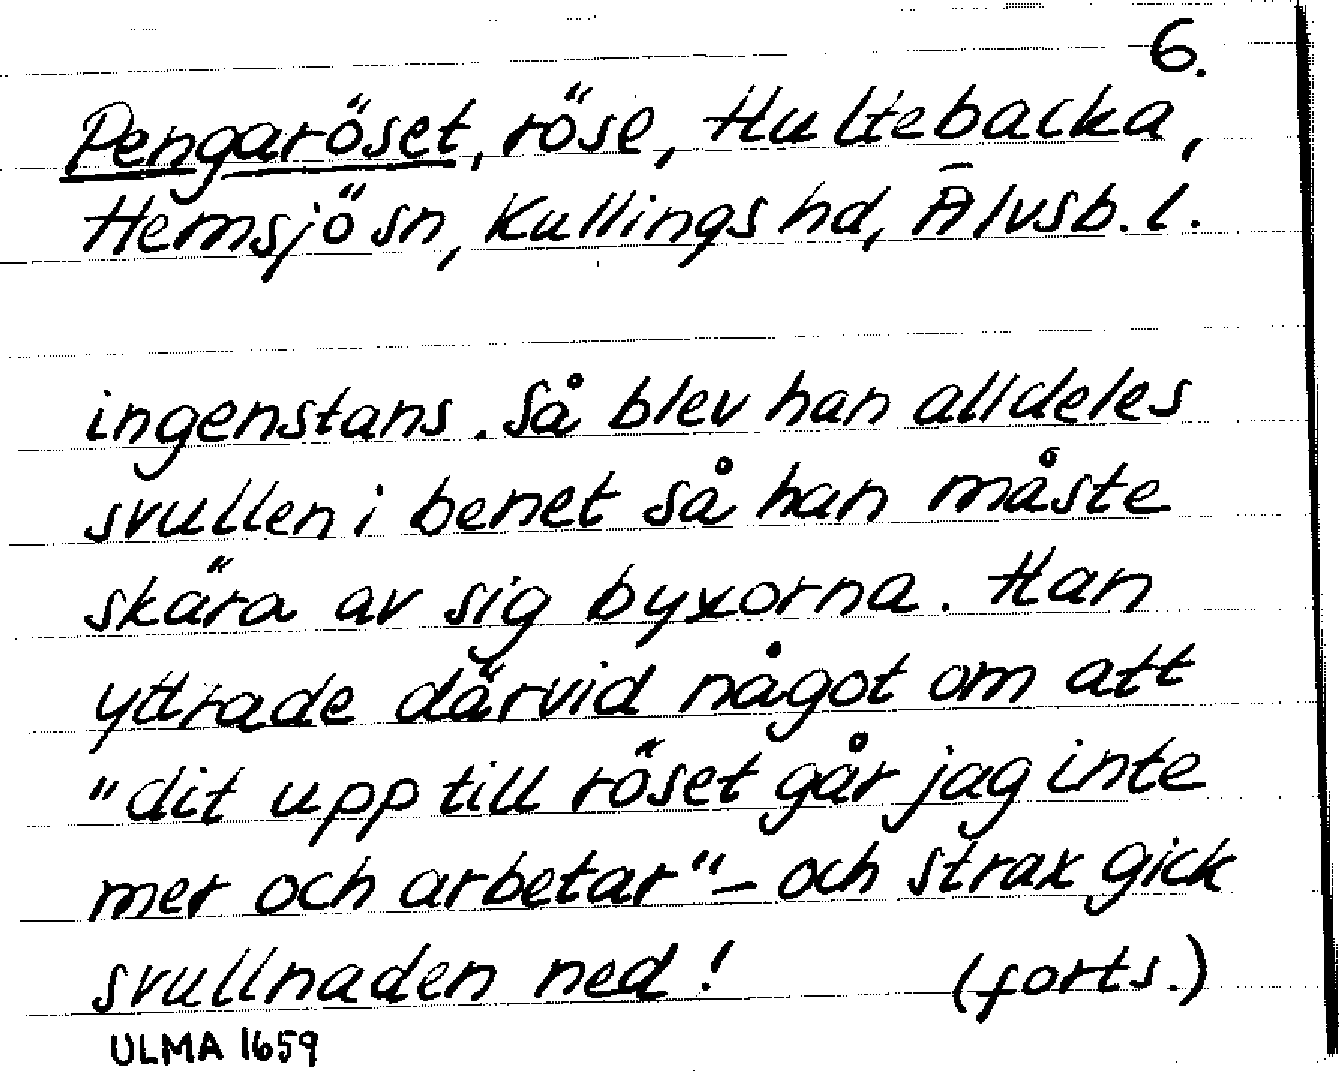 6.
Pengaröset, röse, Hultebacka,
Hemsjö sn, Kullings hd, Älvsb. l.
ingenstans. Så blev han alldeles
svullen i benet så han måste
skära av sig byxorna. Han
yttrade därvid något om att
"dit upp till röset går jag inte
mer och arbetar" – och strax gick
svullnaden ned! (forts.)
ULMA 1659